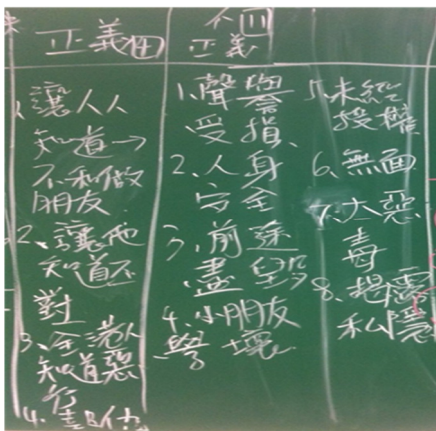 正義
不
正義
1. 讓人人
知道→
不和做
朋友
2. 讓他
知道不
對
3. 全港人
知道惡
行
4.
1. 聲譽
受損
2. 人身
安全
3. 前途
盡毀
4. 小朋友
學壞
5. 未經
授權
6. 無面
7. 大惡
毒
8. 揭露
私隱